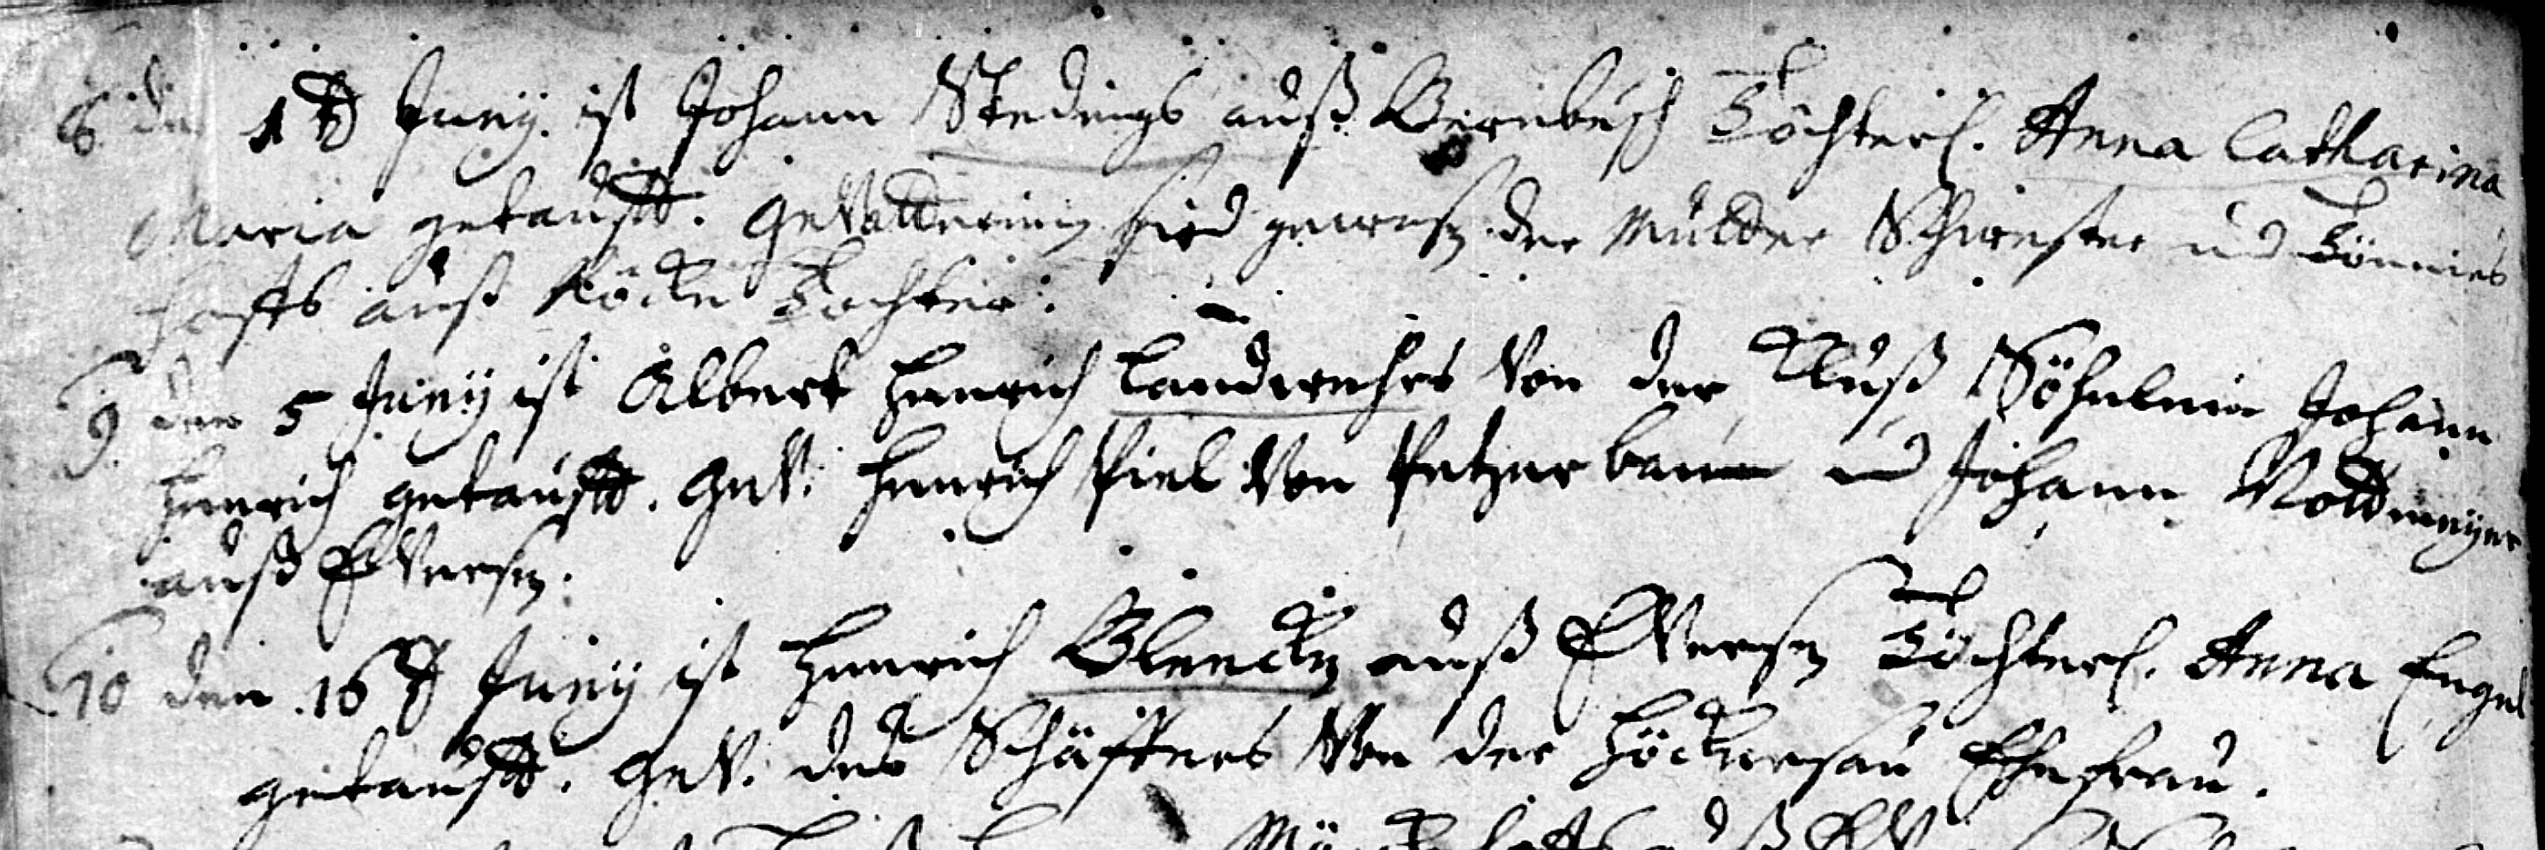 8 den 1t Juny. ist Johann Stedings auß Birnbusch Töchterl. Anna Catharina
Maria getaufft. Gevatterinn sind gewesen der Mutter Schwester und Tönnies
auß Röcke Tochter.
9 den 5 Juny ist Albert Henrich Landwehrs von der Kluß Söhnlein Johann
Henrich getaufft. Gev. Henrich Piel von Petzer baum und Johann Nottmeyer
auß Eversen.
10 den 16t Juny ist Henrich Blencken auß Eversen Töchterl. Anna Engel
getaufft. Gev. des Schäffers von der Höckersau Ehefrau.